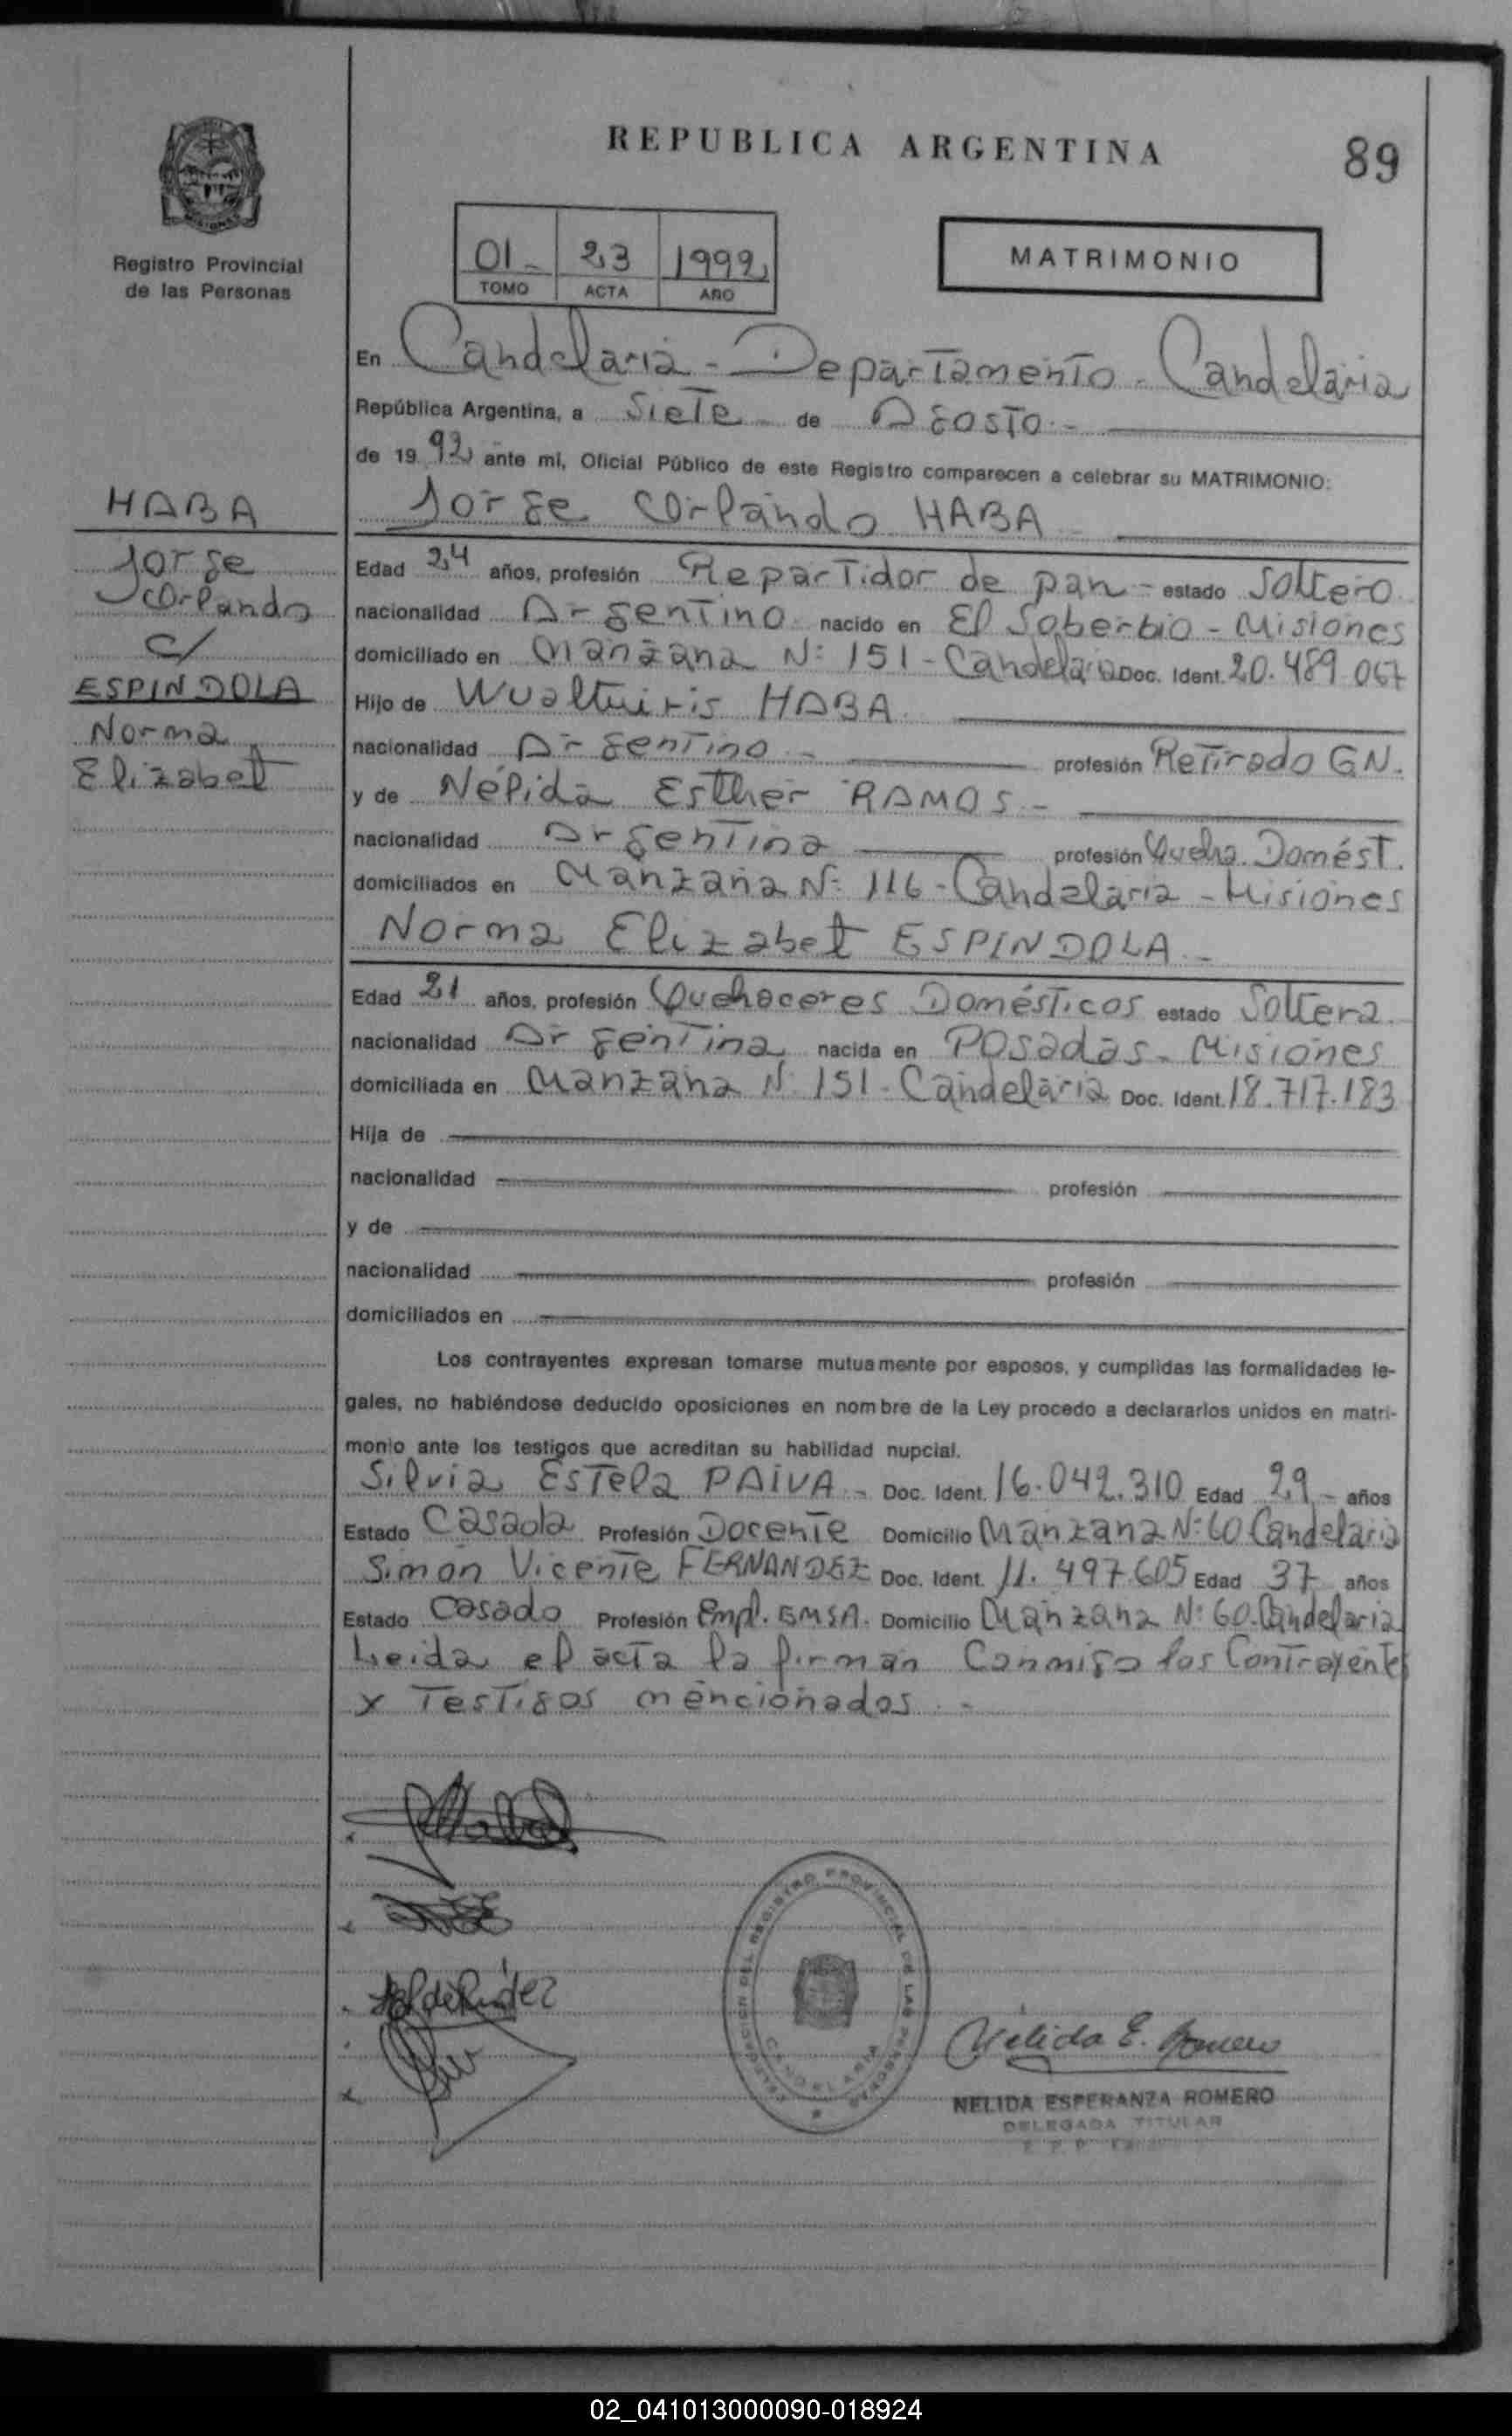 REPUBLICA ARGENTINA
89
Registro Provincial
de las Personas
01- 23 1992
TOMO ACTA AÑO
MATRIMONIO
En Candelaria - Departamento - Candelaria
República Argentina, a Siete de Agosto.-
de 19 92 ante mi, Oficial Público de este Registro comparecen a celebrar su MATRIMONIO:
Jorge Orlando HABA
HABA
Jorge
Orlando
C/
ESPINDOLA
Norma
Elizabet
Edad 24 años, profesión Repartidor de pan - estado Soltero
nacionalidad Argentino nacido en El Soberbio - Misiones
domiciliado en Manzana N: 151 - Candelaria Doc. Ident. 20.489.067
Hijo de HABA
nacionalidad Argentino - profesión Retirado GN.
y de Nélida Esther RAMOS -
nacionalidad Argentina profesión Queha. Domést.
domiciliados en Manzana N: 116 - Candelaria - Misiones
Norma Elizabet ESPINDOLA -
Edad 21 años, profesión Quehaceres Domésticos estado Soltera
nacionalidad Argentina nacida en Posadas - Misiones
domiciliada en Manzana N: 151 - Candelaria Doc. Ident. 18.717.183
Hija de
nacionalidad profesión
y de
nacionalidad profesión
domiciliados en
Los contrayentes expresan tomarse mutuamente por esposos, y cumplidas las formalidades le-
gales, no habiéndose deducido oposiciones en nombre de la Ley procedo a declararlos unidos en matri-
monio ante los testigos que acreditan su habilidad nupcial.
Silvia Estela PAIVA - Doc. Ident. 16.042.310 Edad 29 - años
Estado Casada Profesión Docente Domicilio Manzana N: 60 Candelaria
Simón Vicente FERNANDEZ Doc. Ident. 11.497.605 Edad 37 años
Estado Casado Profesión Empl. EMSA. Domicilio Manzana N: 60. Candelaria
Leida el acta la firman Conmigo los Contrayentes
y Testigos mencionados. -
DELEGACION DEL REGISTRO PROVINCIAL DE LAS PERSONAS
CANDELARIA
Nélida E. Romero
NELIDA ESPERANZA ROMERO
DELEGADA TITULAR
02_041013000090-018924